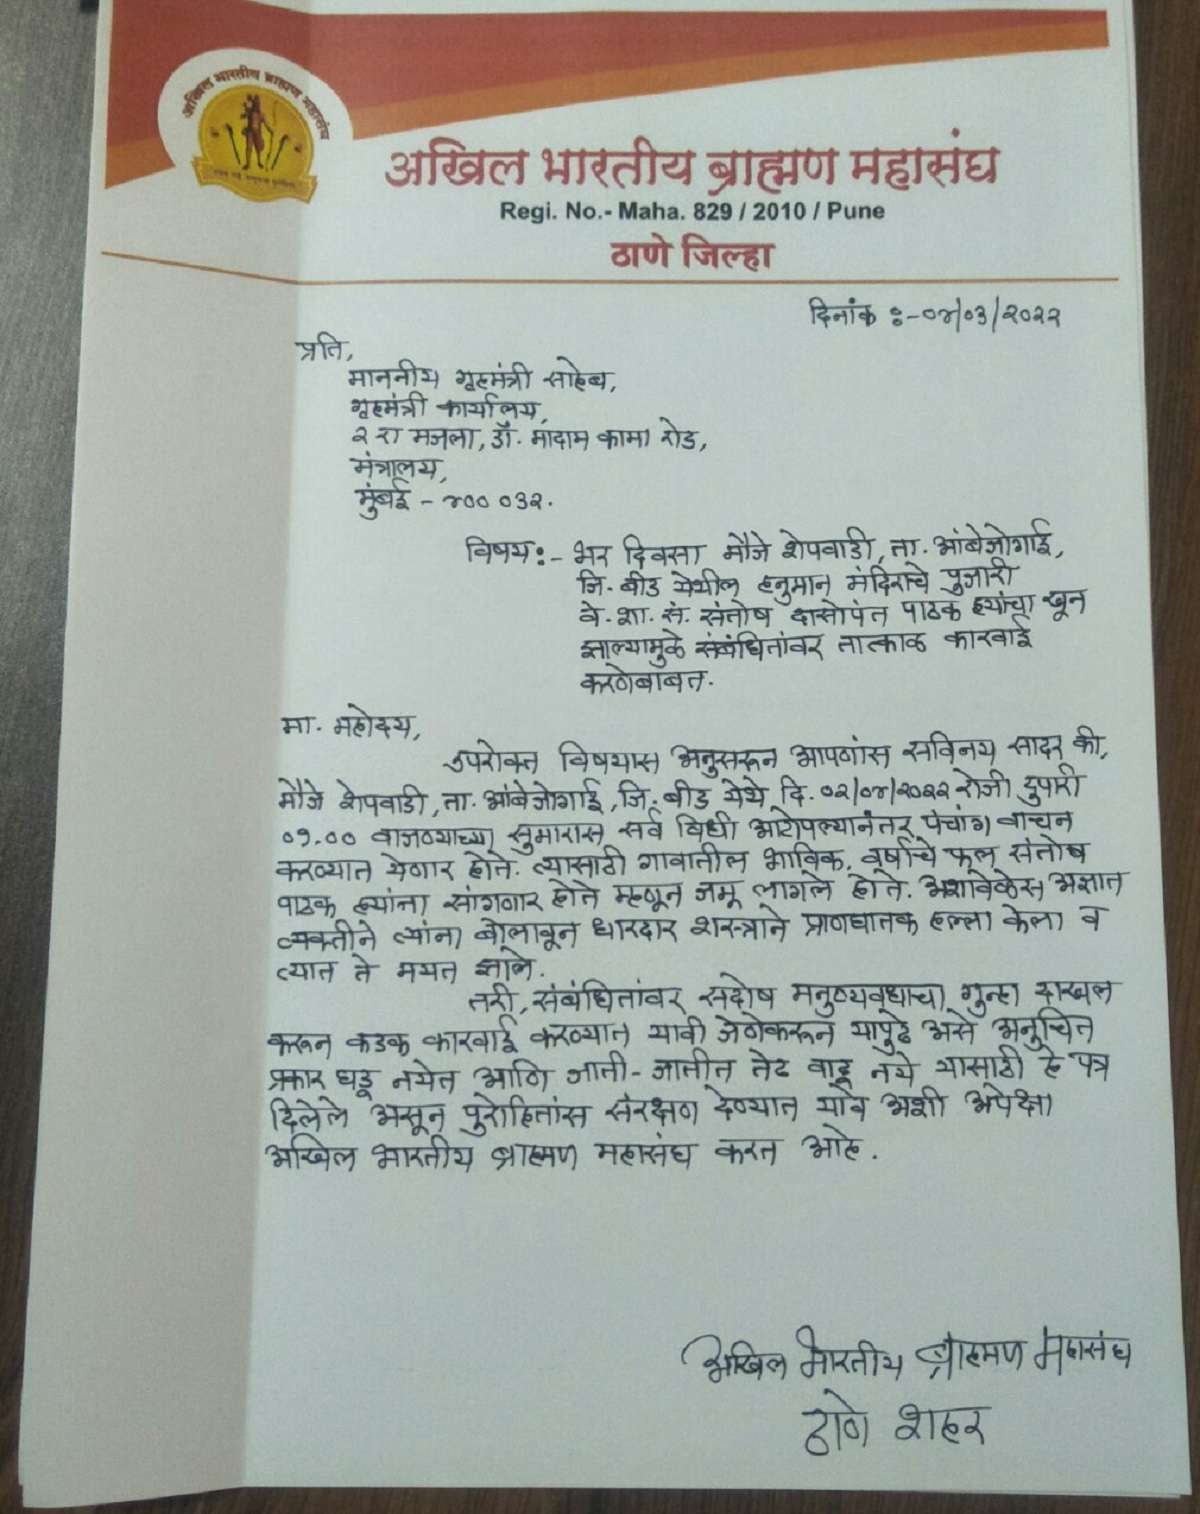 अखिल भारतीय ब्राह्मण महासंघ
अखिल भारतीय ब्राह्मण महासंघ
Regi. No.- Maha. 829 / 2010 / Pune
ठाणे जिल्हा
दिनांक :- ०४/०३/२०२२
प्रति,
माननीय गृहमंत्री साहेब,
गृहमंत्री कार्यालय,
२ रा मजला, डॉ. मादाम कामा रोड,
मंत्रालय,
मुंबई - ४०० ०३२.
विषय:- भर दिवसा मौजे शेपवाडी, ता. आंबेजोगाई,
जि. बीड येथील हनुमान मंदिराचे पुजारी
वे. शा. सं. संतोष दासोपंत पाठक ह्यांचा खून
झाल्यामुळे संबंधितांवर तात्काळ कारवाई
करणेबाबत.
मा. महोदय,
उपरोक्त विषयास अनुसरून आपणांस सविनय सादर की,
मौजे शेपवाडी, ता. आंबेजोगाई, जि. बीड येथे दि. ०२/०४/२०२२ रोजी दुपारी
०१.०० वाजण्याच्या सुमारास सर्व विधी आटोपल्यानंतर पंचांग वाचन
करण्यात येणार होते. त्यासाठी गावातील भाविक, वर्षाचे फल संतोष
पाठक ह्यांना सांगणार होते म्हणून जमू लागले होते. अशावेळेस अज्ञात
व्यक्तीने त्यांना बोलावून धारदार शस्त्राने प्राणघातक हल्ला केला व
त्यात ते मयत झाले.
तरी, संबंधितांवर सदोष मनुष्यवधाचा गुन्हा दाखल
करून कडक कारवाई करण्यात यावी जेणेकरून यापुढे असे अनुचित
प्रकार घडू नयेत आणि जाती-जातीत तेढ वाढू नये यासाठी हे पत्र
दिलेले असून पुरोहितांस संरक्षण देण्यात यावे अशी अपेक्षा
अखिल भारतीय ब्राह्मण महासंघ करत आहे.
अखिल भारतीय ब्राह्मण महासंघ
ठाणे शहर